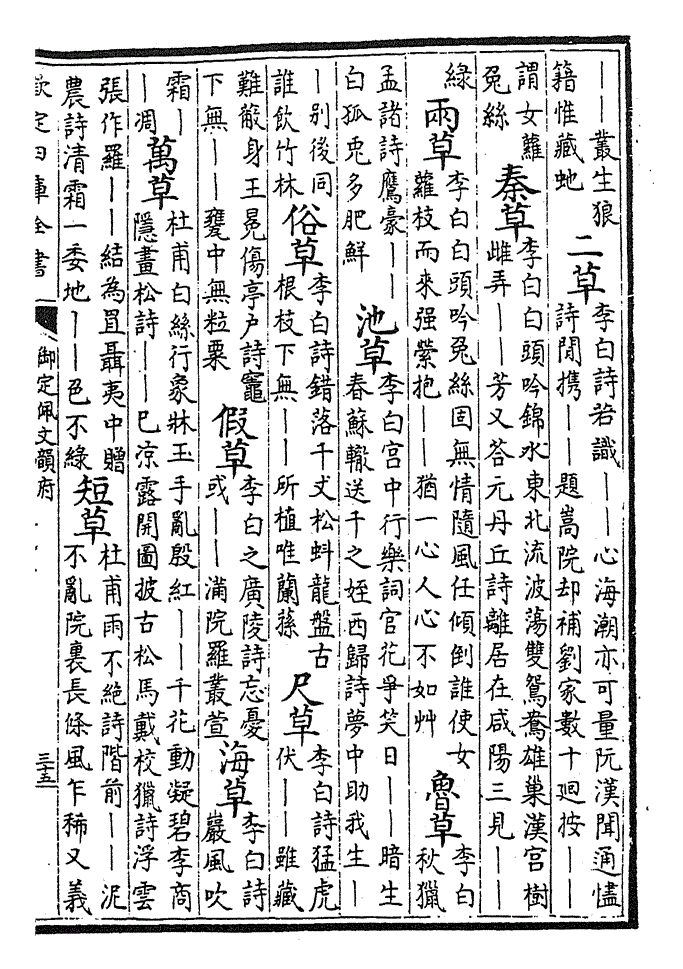 ——叢生狼
籍惟藏虵
二草
李白詩若識——心海潮亦可量阮漢聞通儘
詩閒携——題嵩院却補劉家數十廻按——
謂女蘿
兔絲
秦草
李白白頭吟錦水東北流波蕩雙鴛鴦雄巢漢宮樹
雌弄——芳又荅元丹丘詩離居在咸陽三見——
綠
兩草
李白白頭吟兔絲固無情隨風任傾倒誰使女
蘿枝而來强縈抱——猶一心人心不如艸
魯草
李白
秋獵
孟諸詩鷹豪——
白狐兎多肥鮮
池草
李白宮中行樂詞宮花爭笑日——暗生
春蘇轍送千之姪西歸詩夢中助我生—
—别後同
誰飲竹林
俗草
李白詩錯落千丈松虯龍盤古
根枝下無——所植唯蘭蓀
尺草
李白詩猛虎
伏——雖藏
難蔽身王冕傷亭户詩竈
下無——甕中無粒粟
假草
李白之廣陵詩忘憂
或——滿院羅叢萱
海草
李白詩
巖風吹
霜—
—凋
萬草
杜甫白絲行象牀玉手亂殷紅——千花動凝碧李商
隱畫松詩——已凉露開圖披古松馬戴校獵詩浮雲
張作羅——結為罝聶夷中贈
農詩清霜一委地——色不緑
短草
杜甫雨不絶詩階前——泥
不亂院裏長條風乍稀又義
欽定四庫全書
御定佩文韻府
三十五